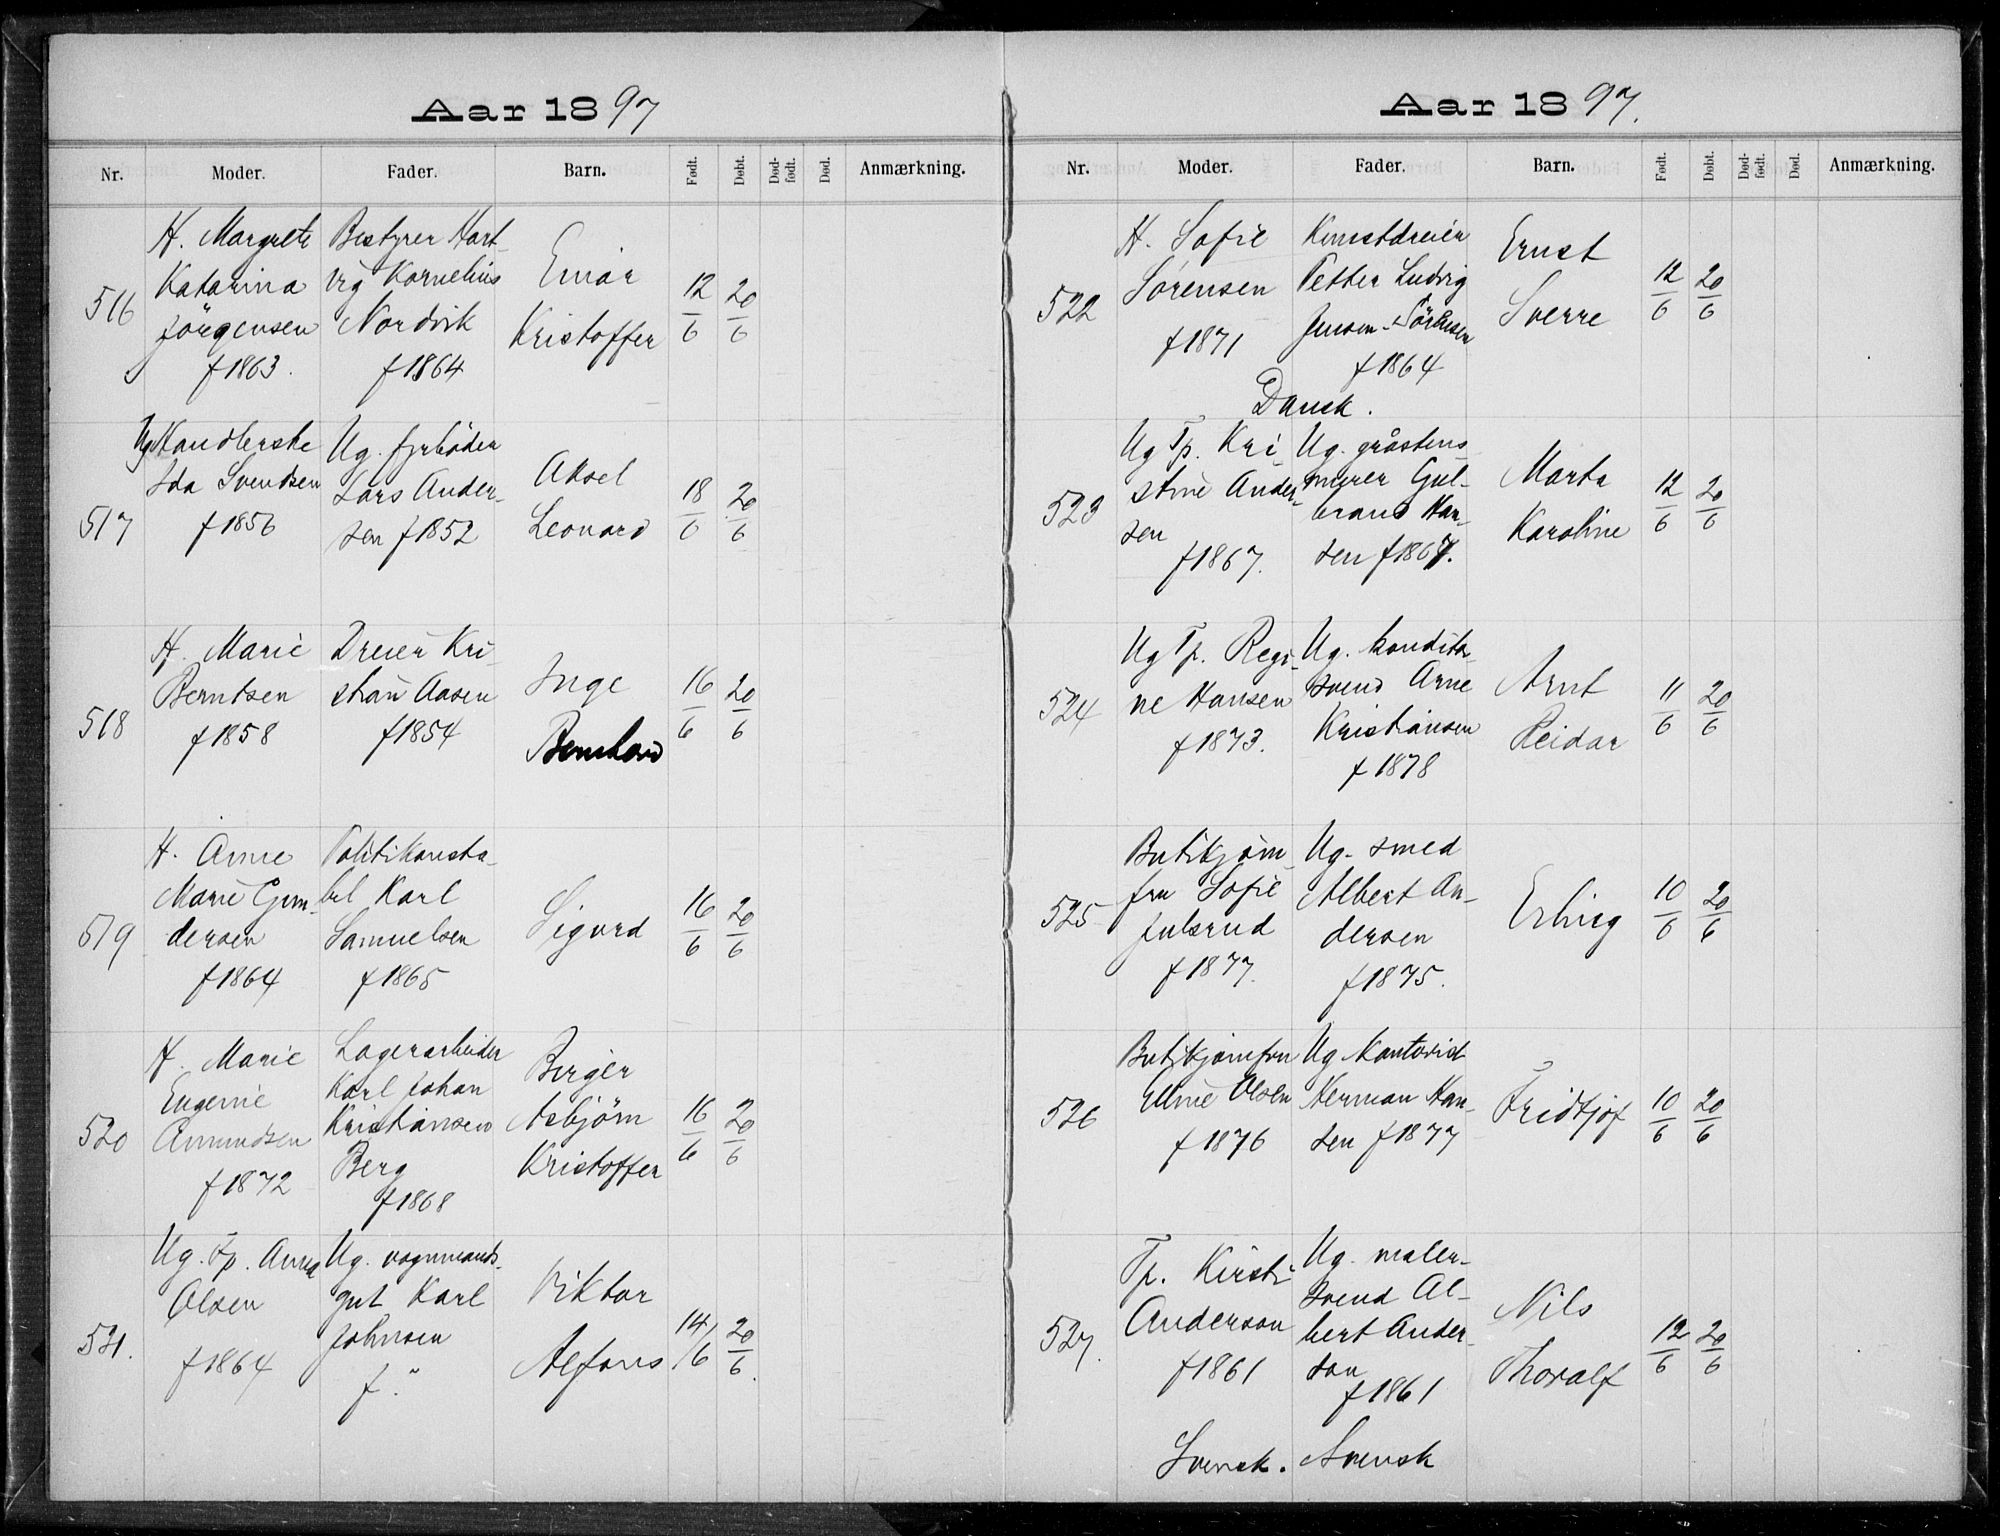 Aar 1897
Nr. Moder. Fader. Barn. Født. Døbt. Død-født. Død. Anmærkning.
516
H. Margrete
Katarina
Jörgensen
f 1863.
Bestyrer Hart-
vig Kornelius
Nordvik
f 1864
Einar
Kristoffer
12/6
20/6
517
Ug Handlerske
Ida Svendsen
f 1856
Ug. fyrböder
Lars Ander-
sen f 1852
Aksel
Leonard
18/6
20/6
518
H. Marie
Berntsen
f 1858
Dreier Kri-
stian Aasen
f 1854
Inge
Bernhard
16/6
20/6
519
H. Anne
Marie Gun-
dersen
f 1864
Politikonsta-
bel Karl
Samuelsen
f 1865
Sigurd
16/6
20/6
520
H. Marie
Eugenie
Amundsen
f 1872
Lagerarbeider
Karl Johan
Kristiansen
Berg
f 1868
Birger
Asbjörn
Kristoffer
16/6
20/6
521.
Ug. Tp. Anna
Olsen
f 1864
Ug. vognmands-
gut Karl
Johnsen
f. "
Viktor
Alfons
14/6
20/6.
Aar 1897.
Nr. Moder. Fader. Barn. Født. Døbt. Død-født. Død. Anmærkning.
522
H. Sofie
Sörensen
f 1871
Kunstdreier
Petter Ludvig
Jensen-Sörensen
f 1864
Dansk.
Ernst
Sverre
12/6
20/6
523
Ug Tp. Kri-
stine Ander-
sen
f 1867.
Ug. gråstens-
murer Gul-
brand Han-
sen f 1867.
Marta
Karoline
12/6
20/6
524
Ug Tp. Regi-
ne Hansen
f 1873.
Ug. konditor-
svend Arne
Kristiansen
f 1878
Arnt
Reidar
11/6
20/6
525
Butikjom-
fru Sofie
Julsrud
f 1877.
Ug. smed
Albert An-
dersen
f 1875.
Erling
10/6
20/6
526
Butikjomfru
Eline Olsen
f 1876
Ug Kontorist
Herman Han-
sen f 1877
Fridtjof
10/6
20/6
527.
Tp. Kirsti
Anderson
f 1861
Svensk.
Ug. maler-
svend Al-
bert Ander-
son
f 1861
Svensk
Nils
Thoralf
12/6
20/6